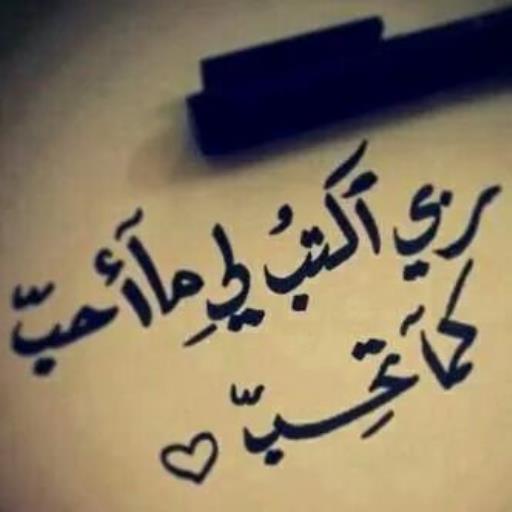 ربي اكتبُ لي ما أحبّ
كما تحِبّ